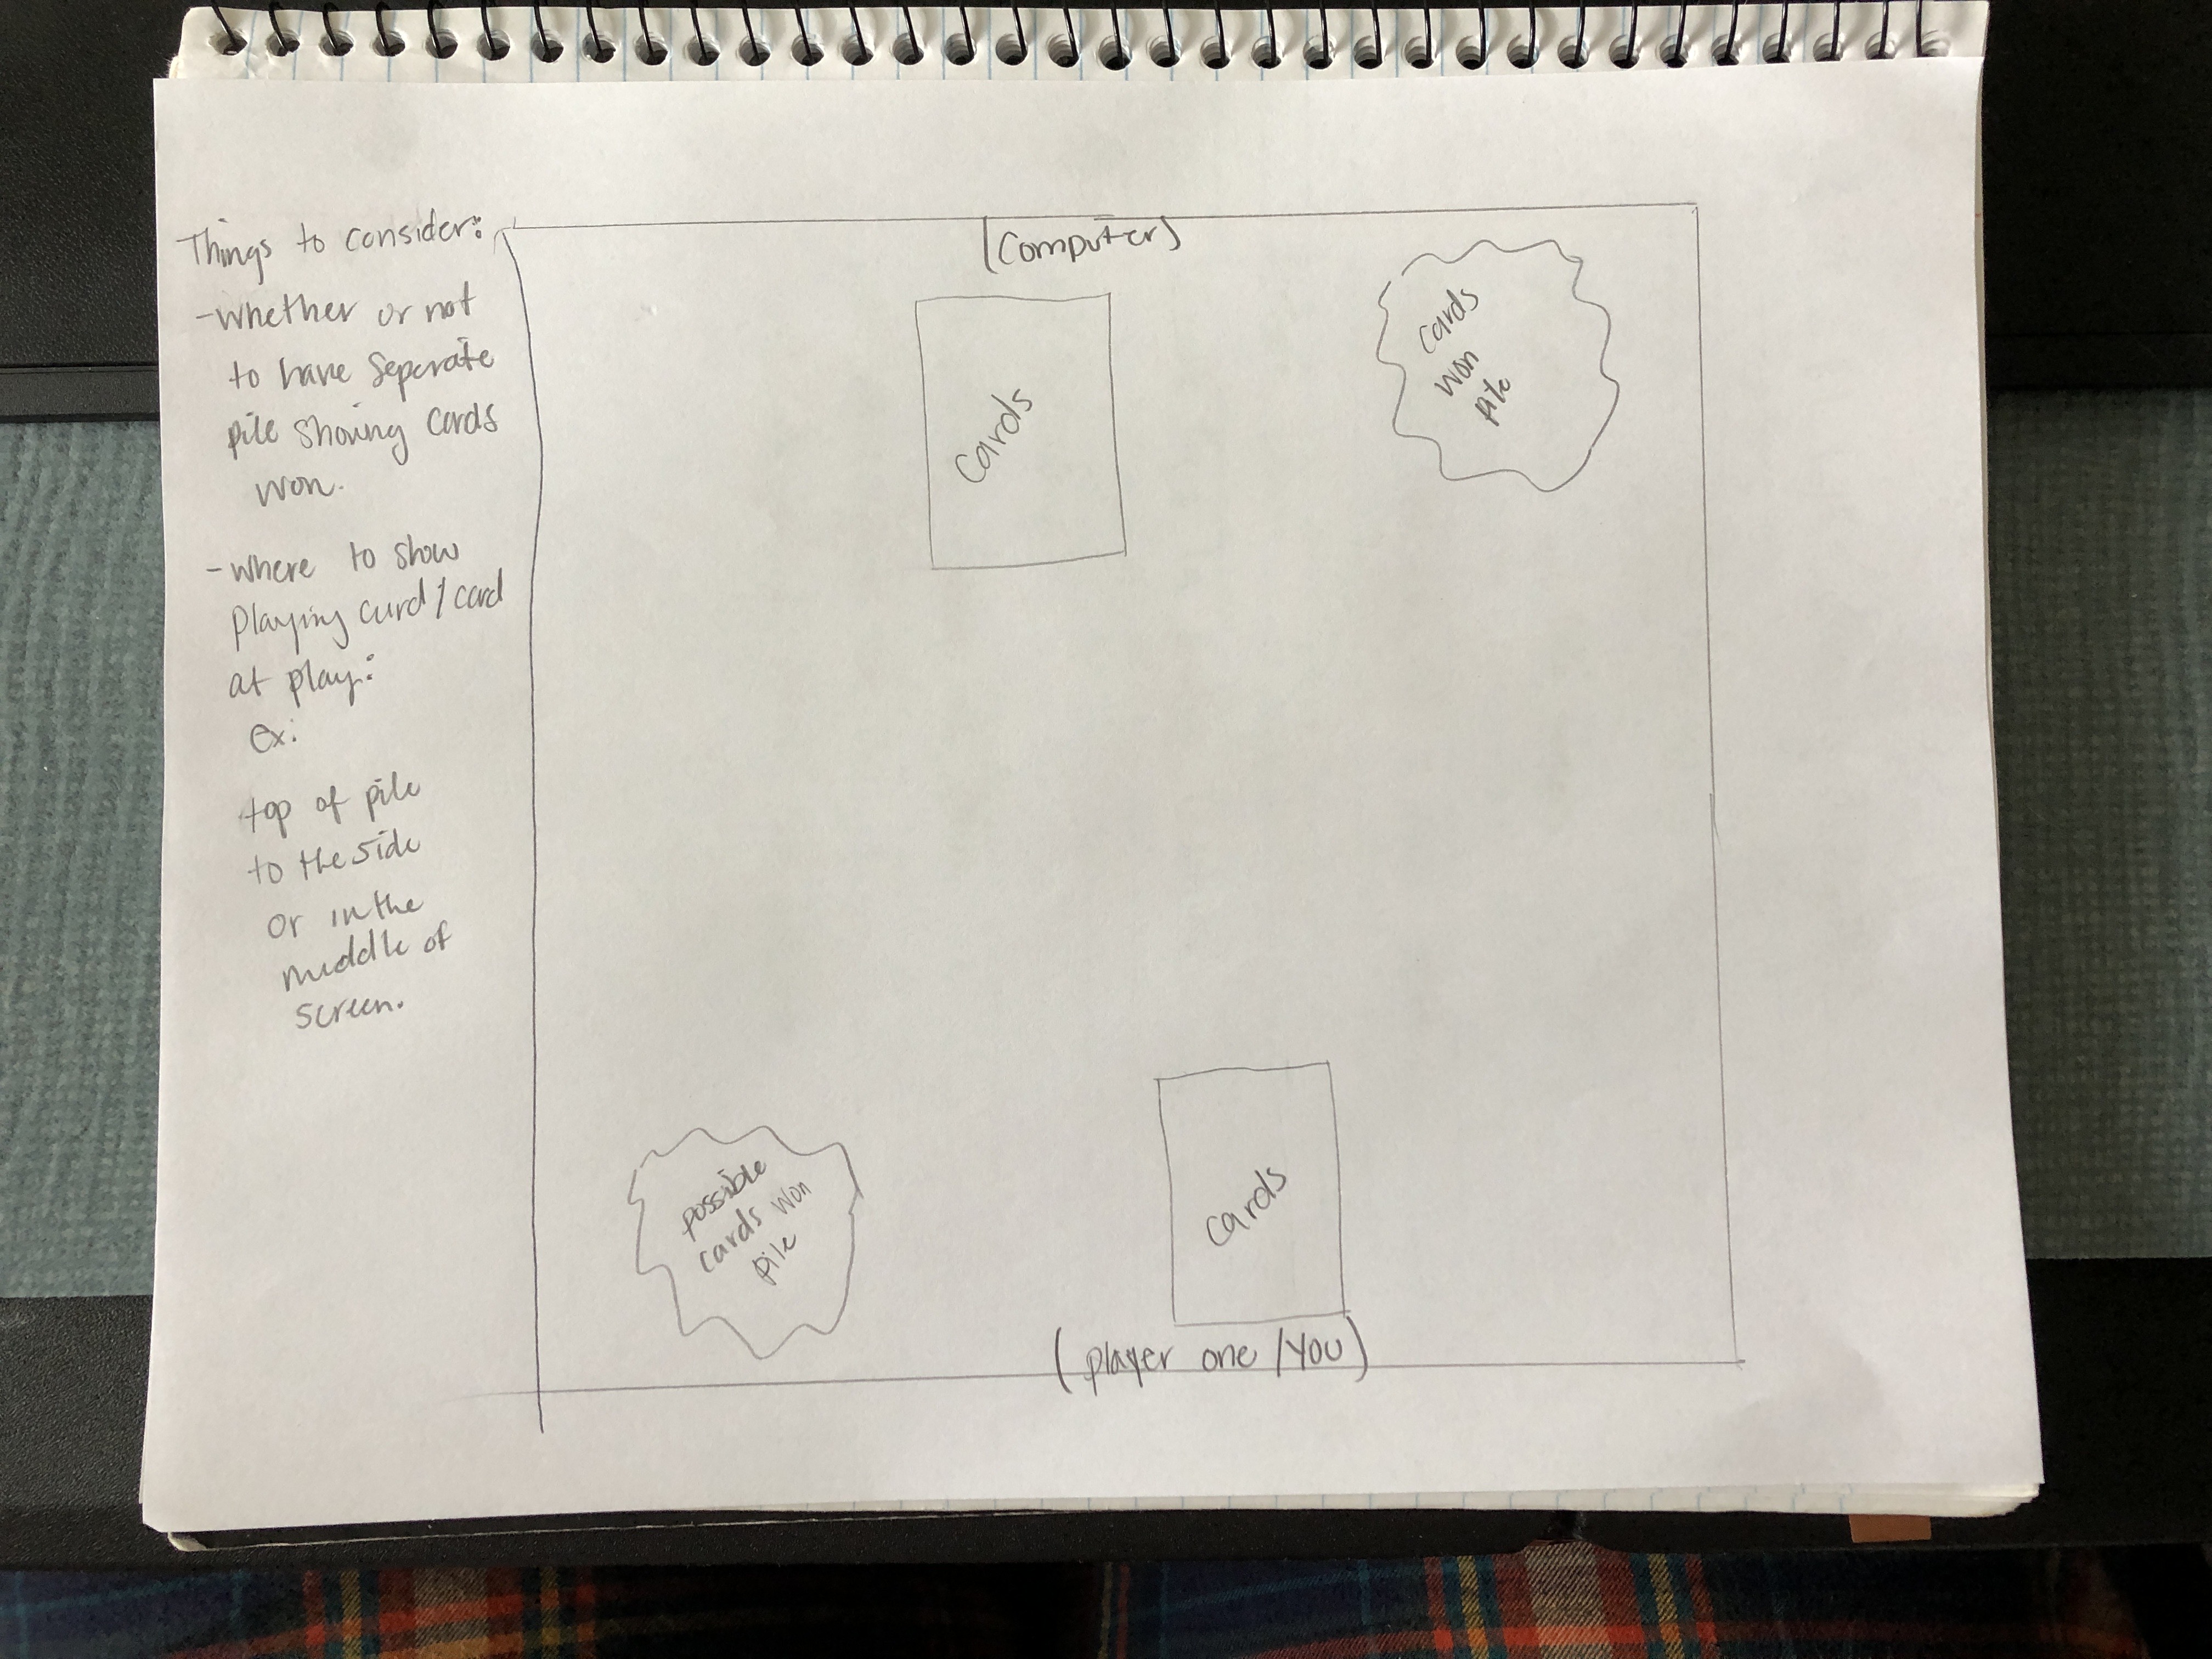 Things to consider:
- whether or not
to have seperate
pile showing cards
won.
- where to show
playing card/card
at play:
ex:
top of pile
to the side
or in the
middle of
screen.
(computer)
cards
cards
won
pile
possible
cards won
pile
cards
(player one/you)